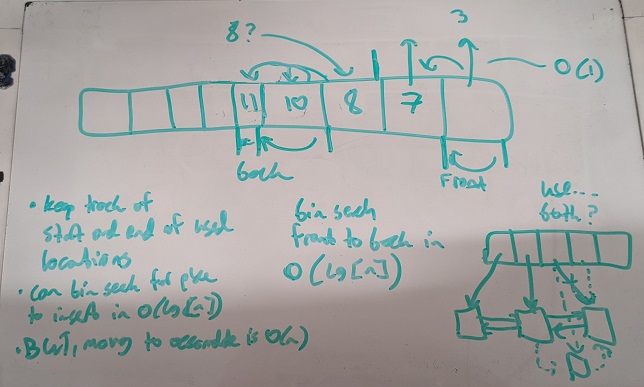 3
8?
O(1)
11 10 8 7
back
Front
• keep track of
start and end of used
locations
• can bin search for place
to insert in O(lg[n])
• BUT, moving to accomodate is O(n)
bin search
front to back in
O(lg[n])
use...
both?